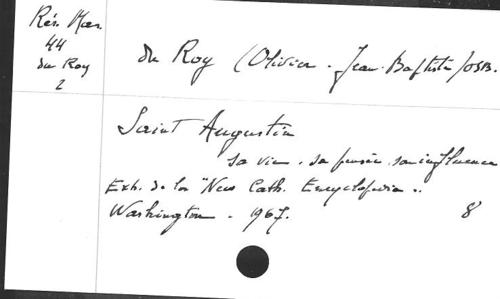 Rés. Mor.
44
du Roy
2
du Roy (Olivier - Jean-Baptiste) OSB.
Saint Augustin
sa vie, sa pensée, son influence
Extr. de la "New Cath. Encyclopedia".
Washington - 1967.
8